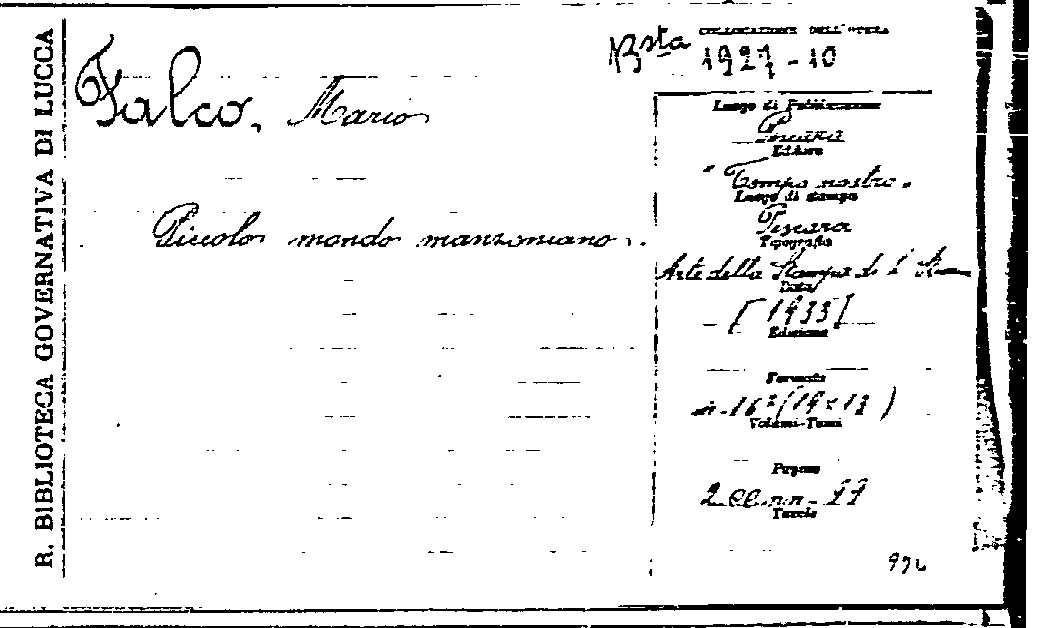 R. BIBLIOTECA GOVERNATIVA DI LUCCA
COLLOCAZIONE DELL'OPERA
Bsta 1927-10
Falco, Mario
Piccolo mondo manzoniano.
Luogo di Pubblicazione
Pescara
Editore
"Tempo nostro"
Luogo di stampa
Pescara
Tipografia
Arte della Stampa di
Data
[1933]
Edizione
Formato
in-16° (19x13)
Volumi-Tomi
Pagine
2 cc. nn. - 77
Tavole